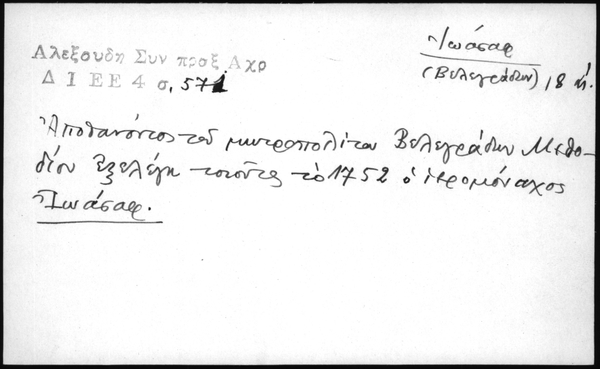 Αλεξουδη Συν πραξ Αχρ
Δ Ι Ε Ε 4 σ. 571
Ἰωάσαφ
(Βελεγράδων) 18 η!
Ἀποθανόντος τοῦ μητροπολίτου Βελεγράδων Μεθο-
δίου ἐξελέγη τὸ 1752 ὁ ἱερομόναχος
Ἰωάσαφ.